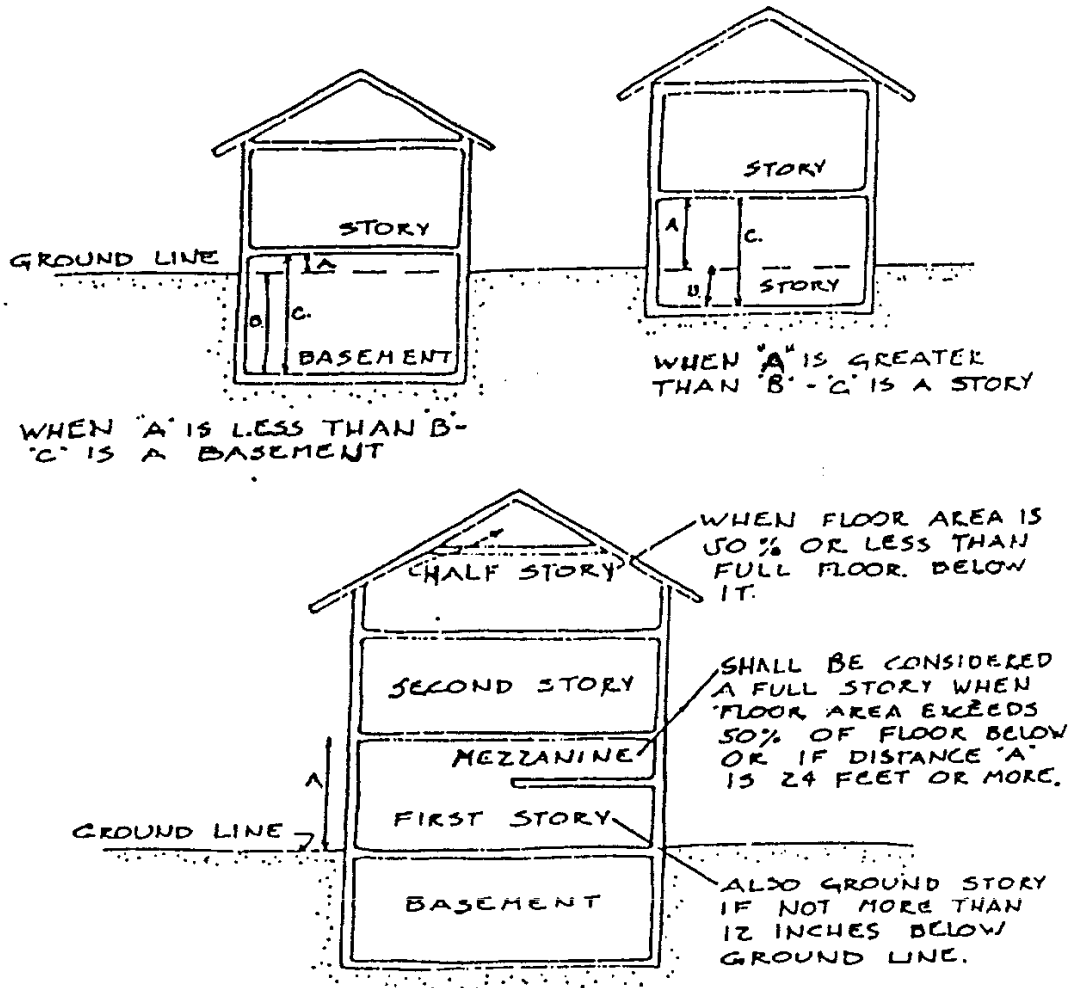 STORY
GROUND LINE
A
B.
C.
BASEMENT
WHEN "A" IS LESS THAN "B" -
"C" IS A BASEMENT
STORY
A
C.
B.
STORY
WHEN "A" IS GREATER
THAN "B" - "C" IS A STORY
HALF STORY
WHEN FLOOR AREA IS
50 % OR LESS THAN
FULL FLOOR. BELOW
IT.
SECOND STORY
SHALL BE CONSIDERED
A FULL STORY WHEN
FLOOR AREA EXCEEDS
50% OF FLOOR BELOW
OR IF DISTANCE "A"
IS 24 FEET OR MORE.
MEZZANINE
A
FIRST STORY
GROUND LINE
BASEMENT
ALSO GROUND STORY
IF NOT MORE THAN
12 INCHES BELOW
GROUND LINE.